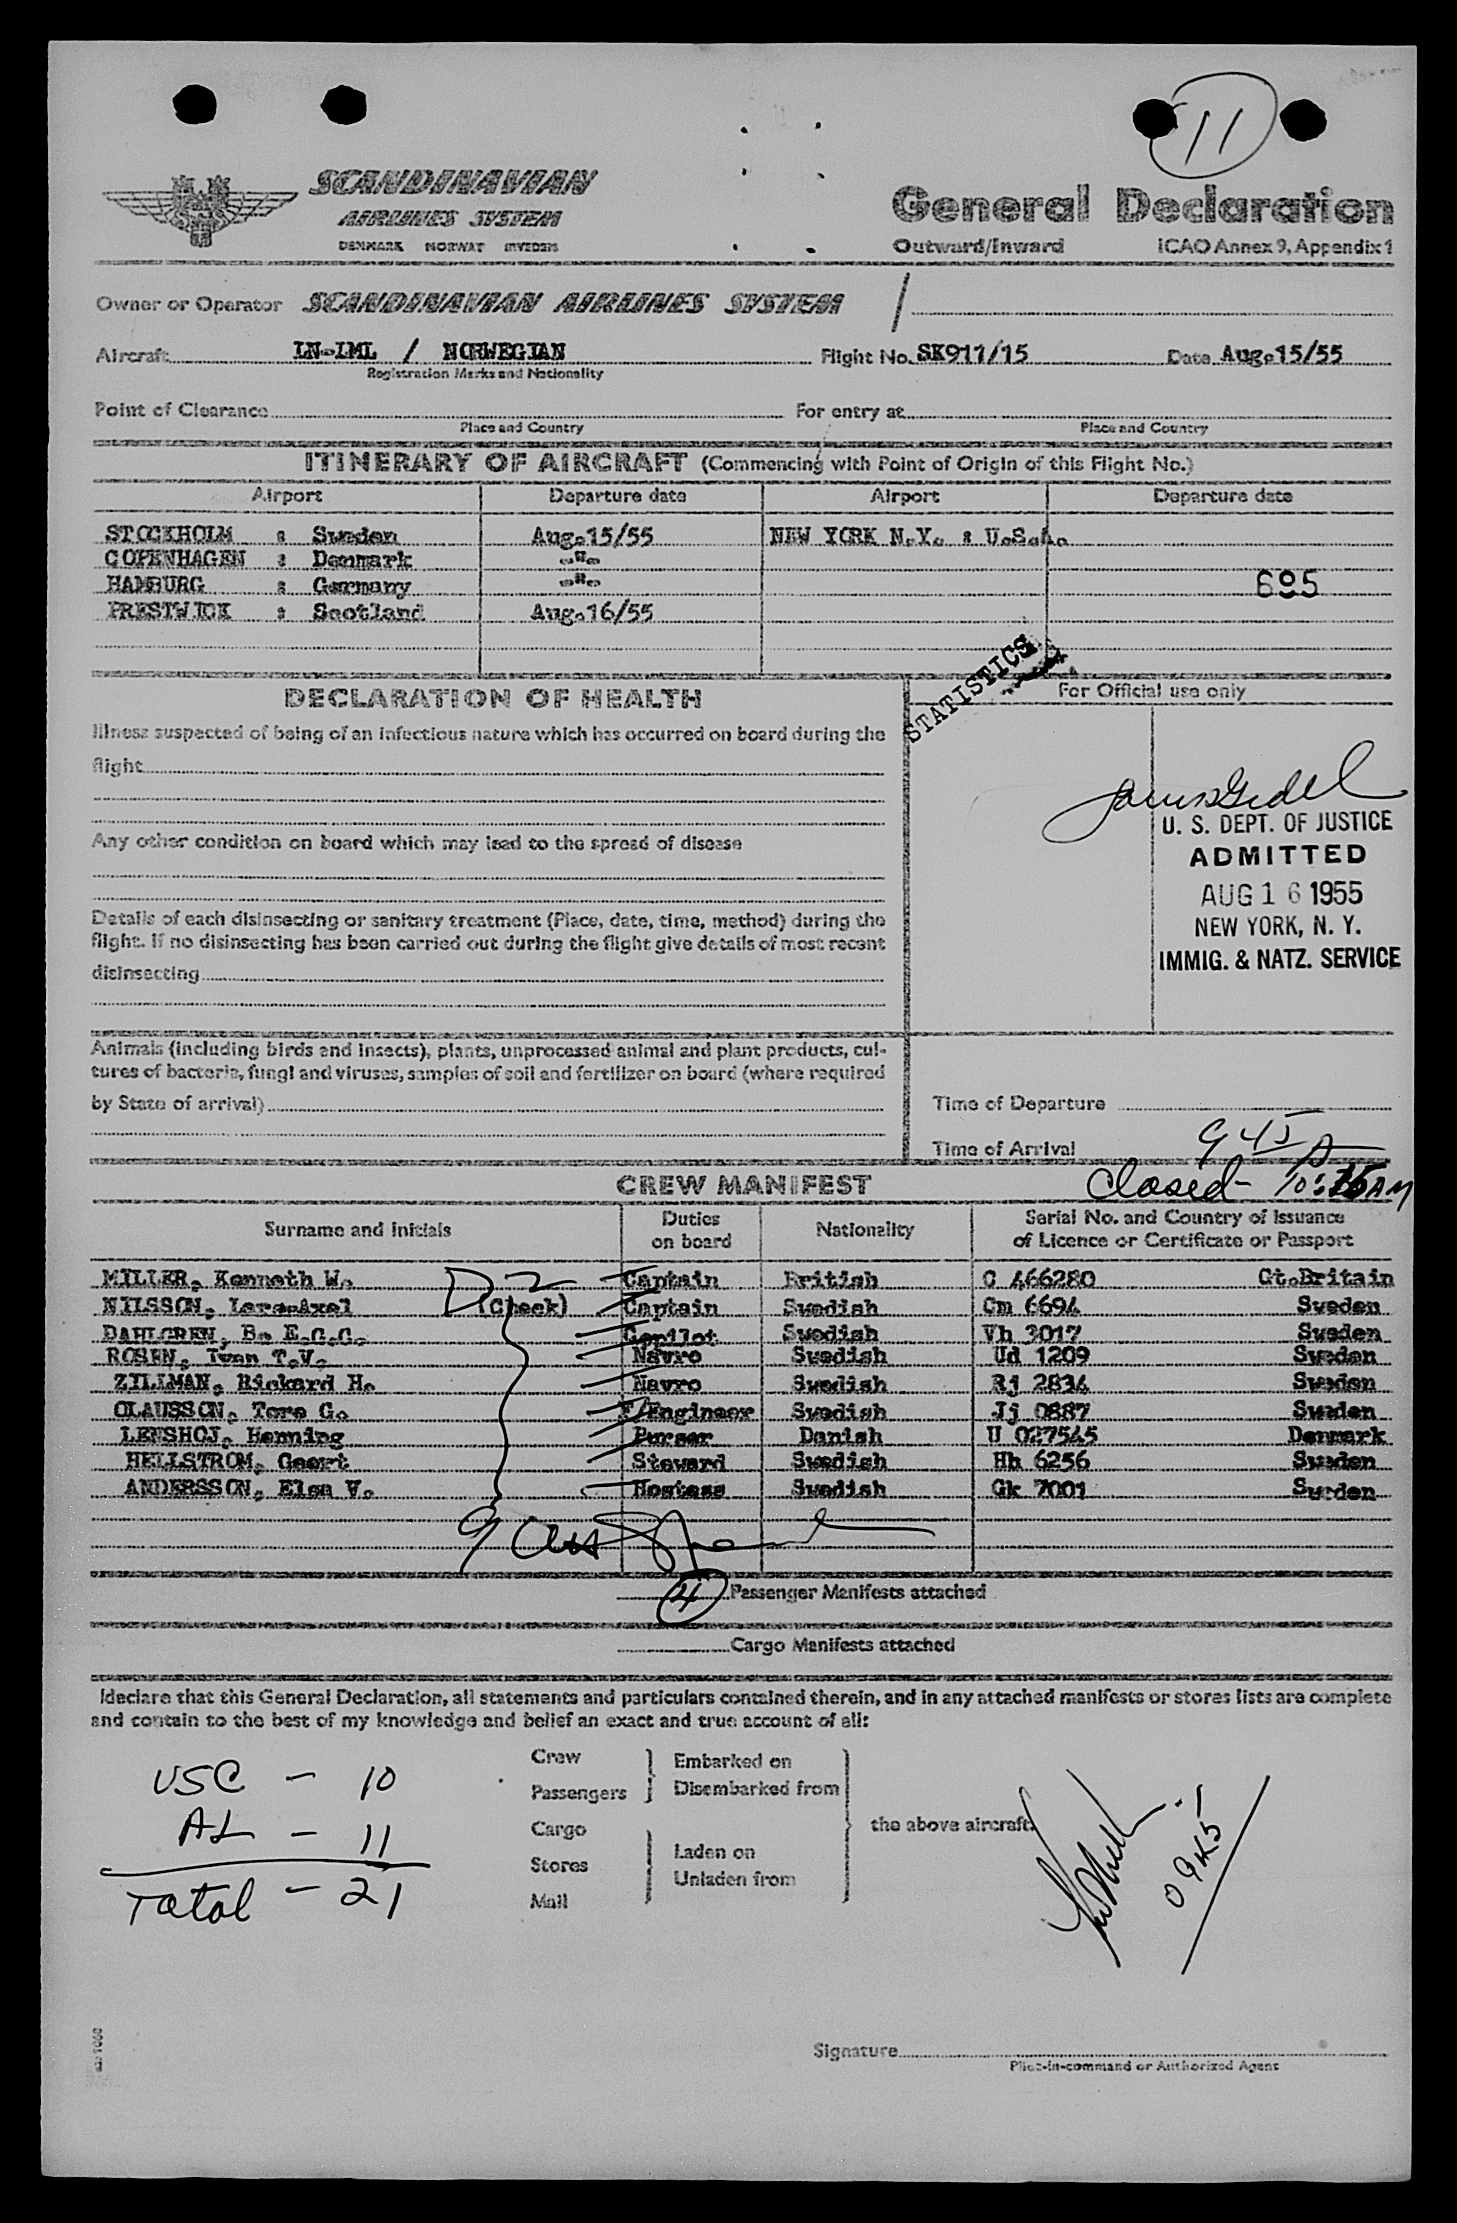 11
SCANDINAVIAN
AIRLINES SYSTEM
DENMARK NORWAY SWEDEN
General Declaration
Outward/Inward ICAO Annex 9, Appendix 1
Owner or Operator SCANDINAVIAN AIRLINES SYSTEM /
Aircraft LN-LML / NORWEGIAN Flight No. SK911/15 Date Aug.15/55
Registration Marks and Nationality
Point of Clearance For entry at
Place and Country Place and Country
ITINERARY OF AIRCRAFT (Commencing with Point of Origin of this Flight No.)
Airport Departure date Airport Departure date
STOCKHOLM : Sweden Aug.15/55 NEW YORK N.Y. : U.S.A.
COPENHAGEN : Denmark -"-
HAMBURG : Germany -"- 695
PRESTWICK : Scotland Aug.16/55
STATISTICS
DECLARATION OF HEALTH For Official use only
Illness suspected of being of an infectious nature which has occurred on board during the
flight
Any other condition on board which may lead to the spread of disease
U. S. DEPT. OF JUSTICE
ADMITTED
AUG 16 1955
NEW YORK, N. Y.
IMMIG. & NATZ. SERVICE
Details of each disinsecting or sanitary treatment (Place, date, time, method) during the
flight. If no disinsecting has been carried out during the flight give details of most recent
disinsecting
Animals (including birds and insects), plants, unprocessed animal and plant products, cul-
tures of bacteria, fungi and viruses, samples of soil and fertilizer on board (where required
by State of arrival)
Time of Departure
Time of Arrival 945 A
CREW MANIFEST Closed - AM
Surname and initials Duties on board Nationality Serial No. and Country of Issuance of Licence or Certificate or Passport
MILLER, Kenneth W. D2 Captain British C 466280 Gt.Britain
NILSSON, Lars-Axel (Check) Captain Swedish Cm 6694 Sweden
DAHLGREN, Bo E.G.G. Copilot Swedish Vh 3017 Sweden
ROSEN, Ivan T.V. Navro Swedish Ud 1209 Sweden
ZILLMAN, Rickard H. Navro Swedish Rj 2834 Sweden
OLAUSSON, Tore G. F/Engineer Swedish Jj 0887 Sweden
LEFSHOJ, Henning Purser Danish U 027545 Denmark
HELLSTROM, Geert Steward Swedish Hh 6256 Sweden
ANDERSSON, Elsa V. Hostess Swedish Gk 7001 Sweden
9
4 Passenger Manifests attached
Cargo Manifests attached
I declare that this General Declaration, all statements and particulars contained therein, and in any attached manifests or stores lists are complete
and contain to the best of my knowledge and belief an exact and true account of all:
USC - 10
AL - 11
Total - 21
Crew Embarked on
Passengers Disembarked from
Cargo the above aircraft.
Laden on
Stores
Unladen from
Mail
Signature
Pilot-in-command or Authorized Agent